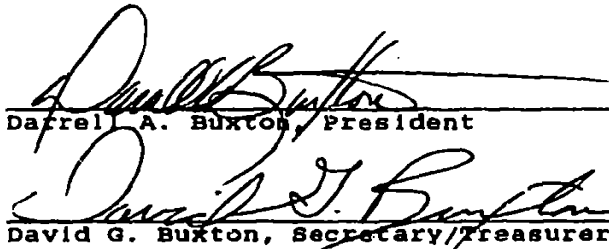 Darrell A. Buxton
Darrell A. Buxton, President
David G. Buxton
David G. Buxton, Secretary/Treasurer